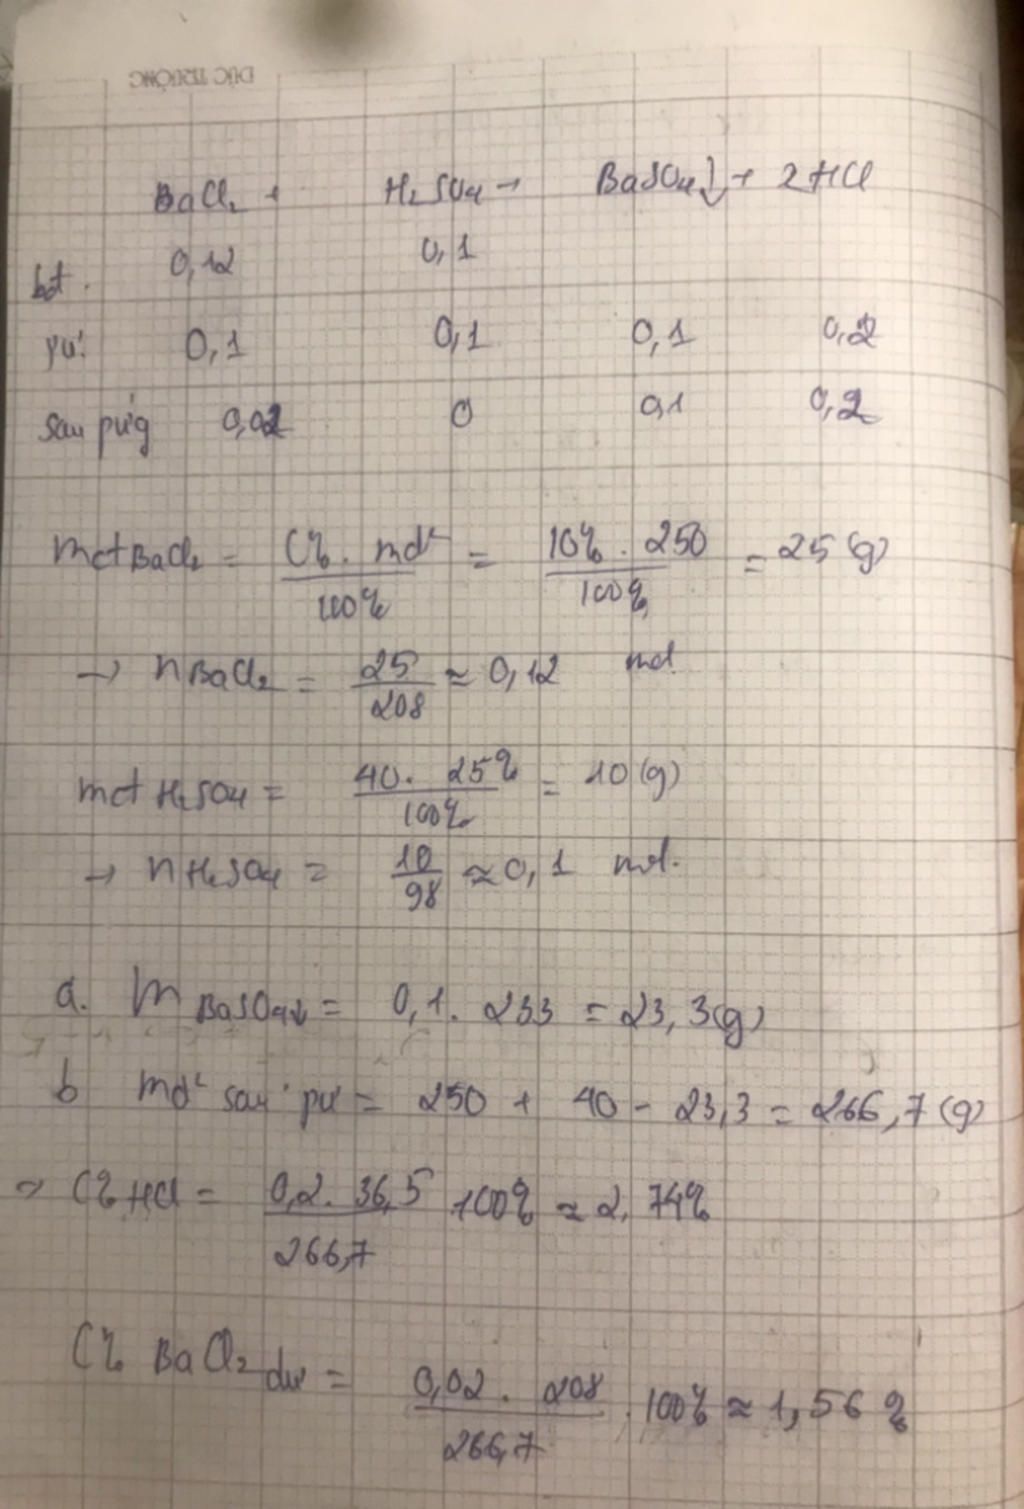 ĐỨC TRƯỜNG
BaCl₂ + H₂SO₄ → BaSO₄↓ + 2HCl
bđ. 0,12 0,1
pứ: 0,1 0,1 0,1 0,2
sau pứg 0,02 0 0,1 0,2
mct BaCl₂ = C%. md² / 100% = 10%. 250 / 100% = 25 (g)
→ nBaCl₂ = 25/208 ≈ 0,12 mol
mct H₂SO₄ = 40. 25% / 100% = 10 (g)
→ nH₂SO₄ = 10/98 ≈ 0,1 mol.
a. mBaSO₄↓ = 0,1. 233 = 23,3(g)
b md² sau pứ = 250 + 40 - 23,3 = 266,7 (g)
=> C% HCl = 0,2. 36,5 / 266,7 .100% ≈ 2,74%
C% BaCl₂ dư = 0,02. 208 / 266,7 .100% ≈ 1,56%